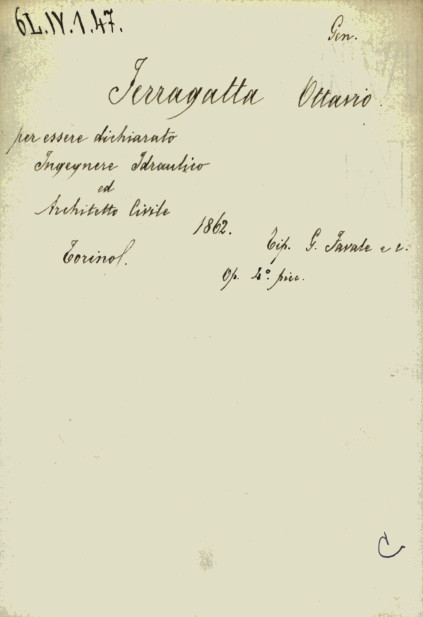 6L.IV.1.47.
Gen.
Ferragatta Ottavio.
per essere dichiarato
Ingegnere Idraulico
ed
Architetto Civile
1862.
Torino.
Tip. G. Favale e c.
Op. 4°. picc.
C